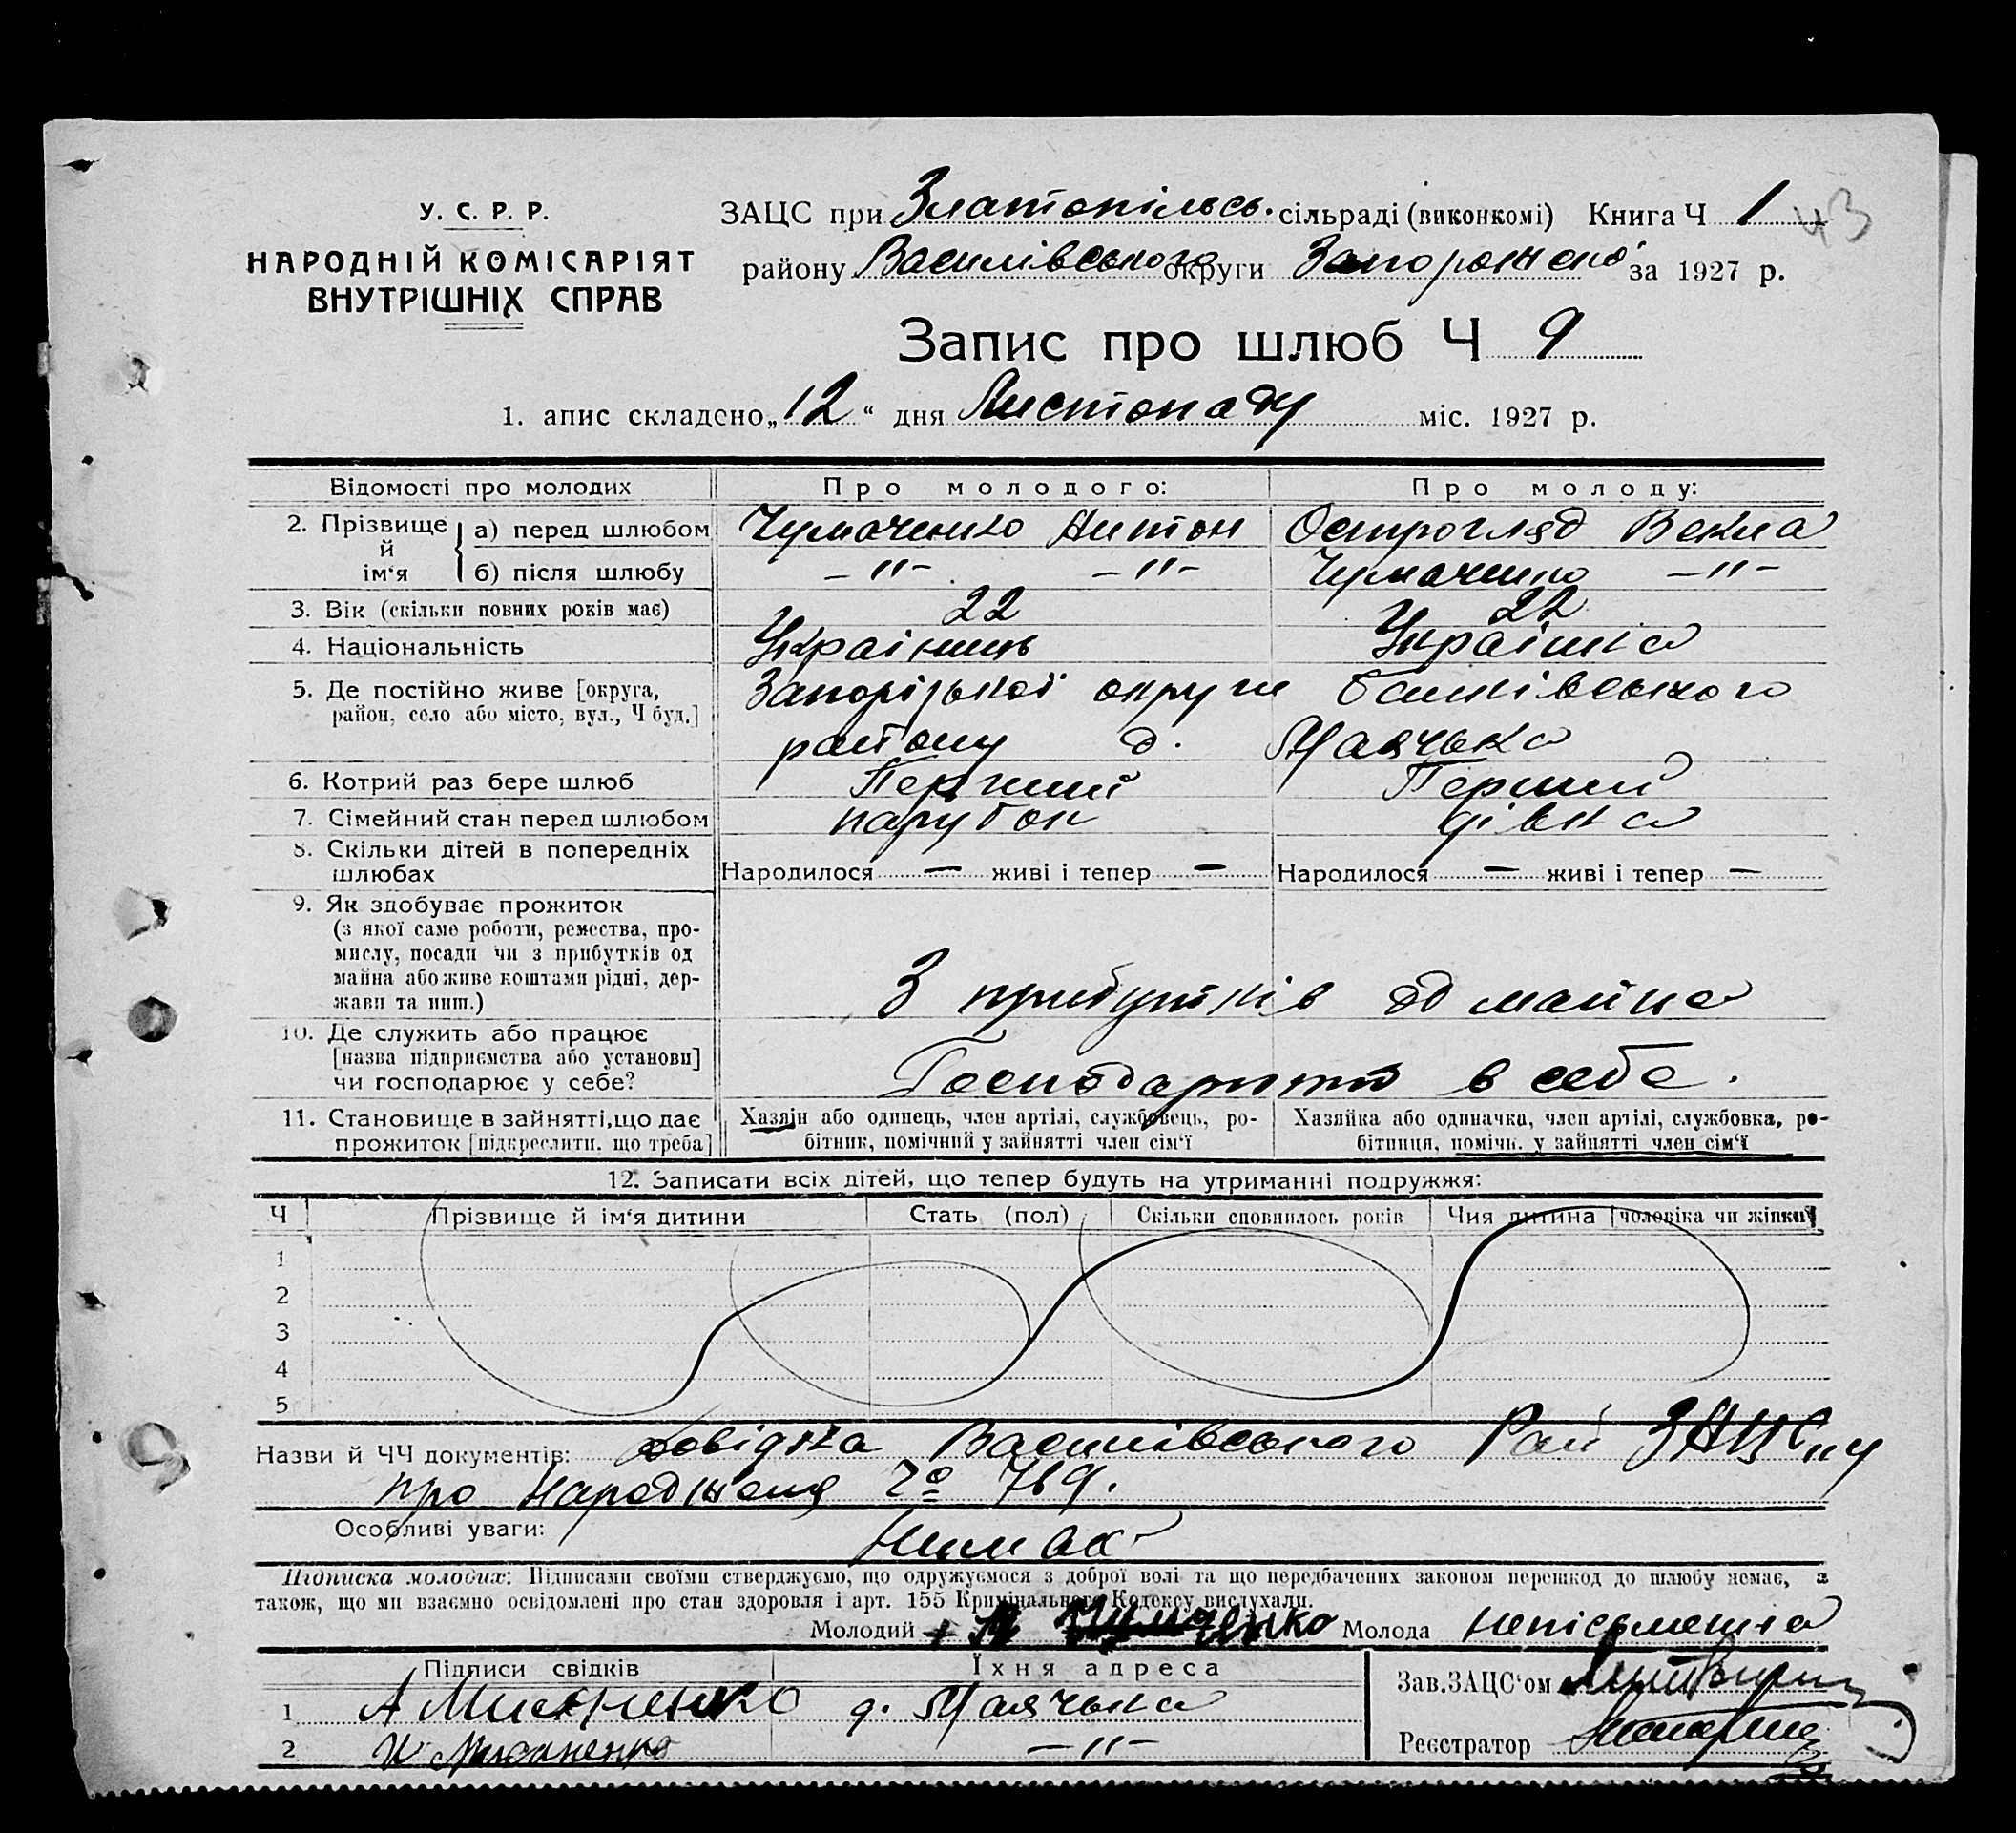 У. С. Р. Р.
НАРОДНІЙ КОМІСАРІЯТ
ВНУТРІШНІХ СПРАВ
ЗАЦС при Златопільсь. сільраді (виконкомі) Книга Ч 1
43
району Василівського округи за 1927 р.
Запис про шлюб Ч 9
1. апис складено „12“ дня Листопаду міс. 1927 р.
Відомості про молодих
Про молодого:
Про молоду:
2. Прізвище й ім‘я
а) перед шлюбом
Чумаченко Антон
Острогляд Векла
б) після шлюбу
–"– –"–
Чумаченко –"–
3. Вік (скільки повних років має)
22
22
4. Національність
Українець
Українка
5. Де постійно живе [округа, район, село або місто, вул., Ч буд.]
Запорізької округи Василівського
району д. Маячька
6. Котрий раз бере шлюб
Перший
Перший
7. Сімейний стан перед шлюбом
парубок
дівка
8. Скільки дітей в попередніх шлюбах
Народилося — живі і тепер —
Народилося — живі і тепер —
9. Як здобуває прожиток
(з якої саме роботи, ремества, про-
мислу, посади чи з прибутків од
майна або живе коштами рідні, дер-
жави та инш.)
З прибутків од майна
10. Де служить або працює
[назва підприємства або установи]
чи господарює у себе?
в себе.
11. Становище в зайнятті, що дає
прожиток [підкреслити. що треба]
Хазяїн або одинець, член артілі, службовець, ро-
бітник, помічний у зайнятті член сім‘ї
Хазяйка або одиначка, член артілі, службовка, ро-
бітниця, помічн. у зайнятті член сім‘ї
12. Записати всіх дітей, що тепер будуть на утриманні подружжя:
Ч
Прізвище й ім‘я дитини
Стать (пол)
Скільки сповнилось років
Чия дитина [чоловіка чи жінки]
1
2
3
4
5
Назви й ЧЧ документів: Довідка Василівського Рай ЗАЦСпу
про Народження 769.
Особливі уваги: Нимає
Підписка молодих: Підписами своїми стверджуємо, що одружуємося з доброї волі та що передбачених законом перешкод до шлюбу немає, а
також, що ми взаємно освідомлені про стан здоровля і арт. 155 Кримінального Кодексу вислухали.
Молодий Чумаченко Молода непісьменна
Підписи свідків
Їхня адреса
1 д. Маячька
2 –"–
Зав. ЗАЦС‘ом
Реєстратор